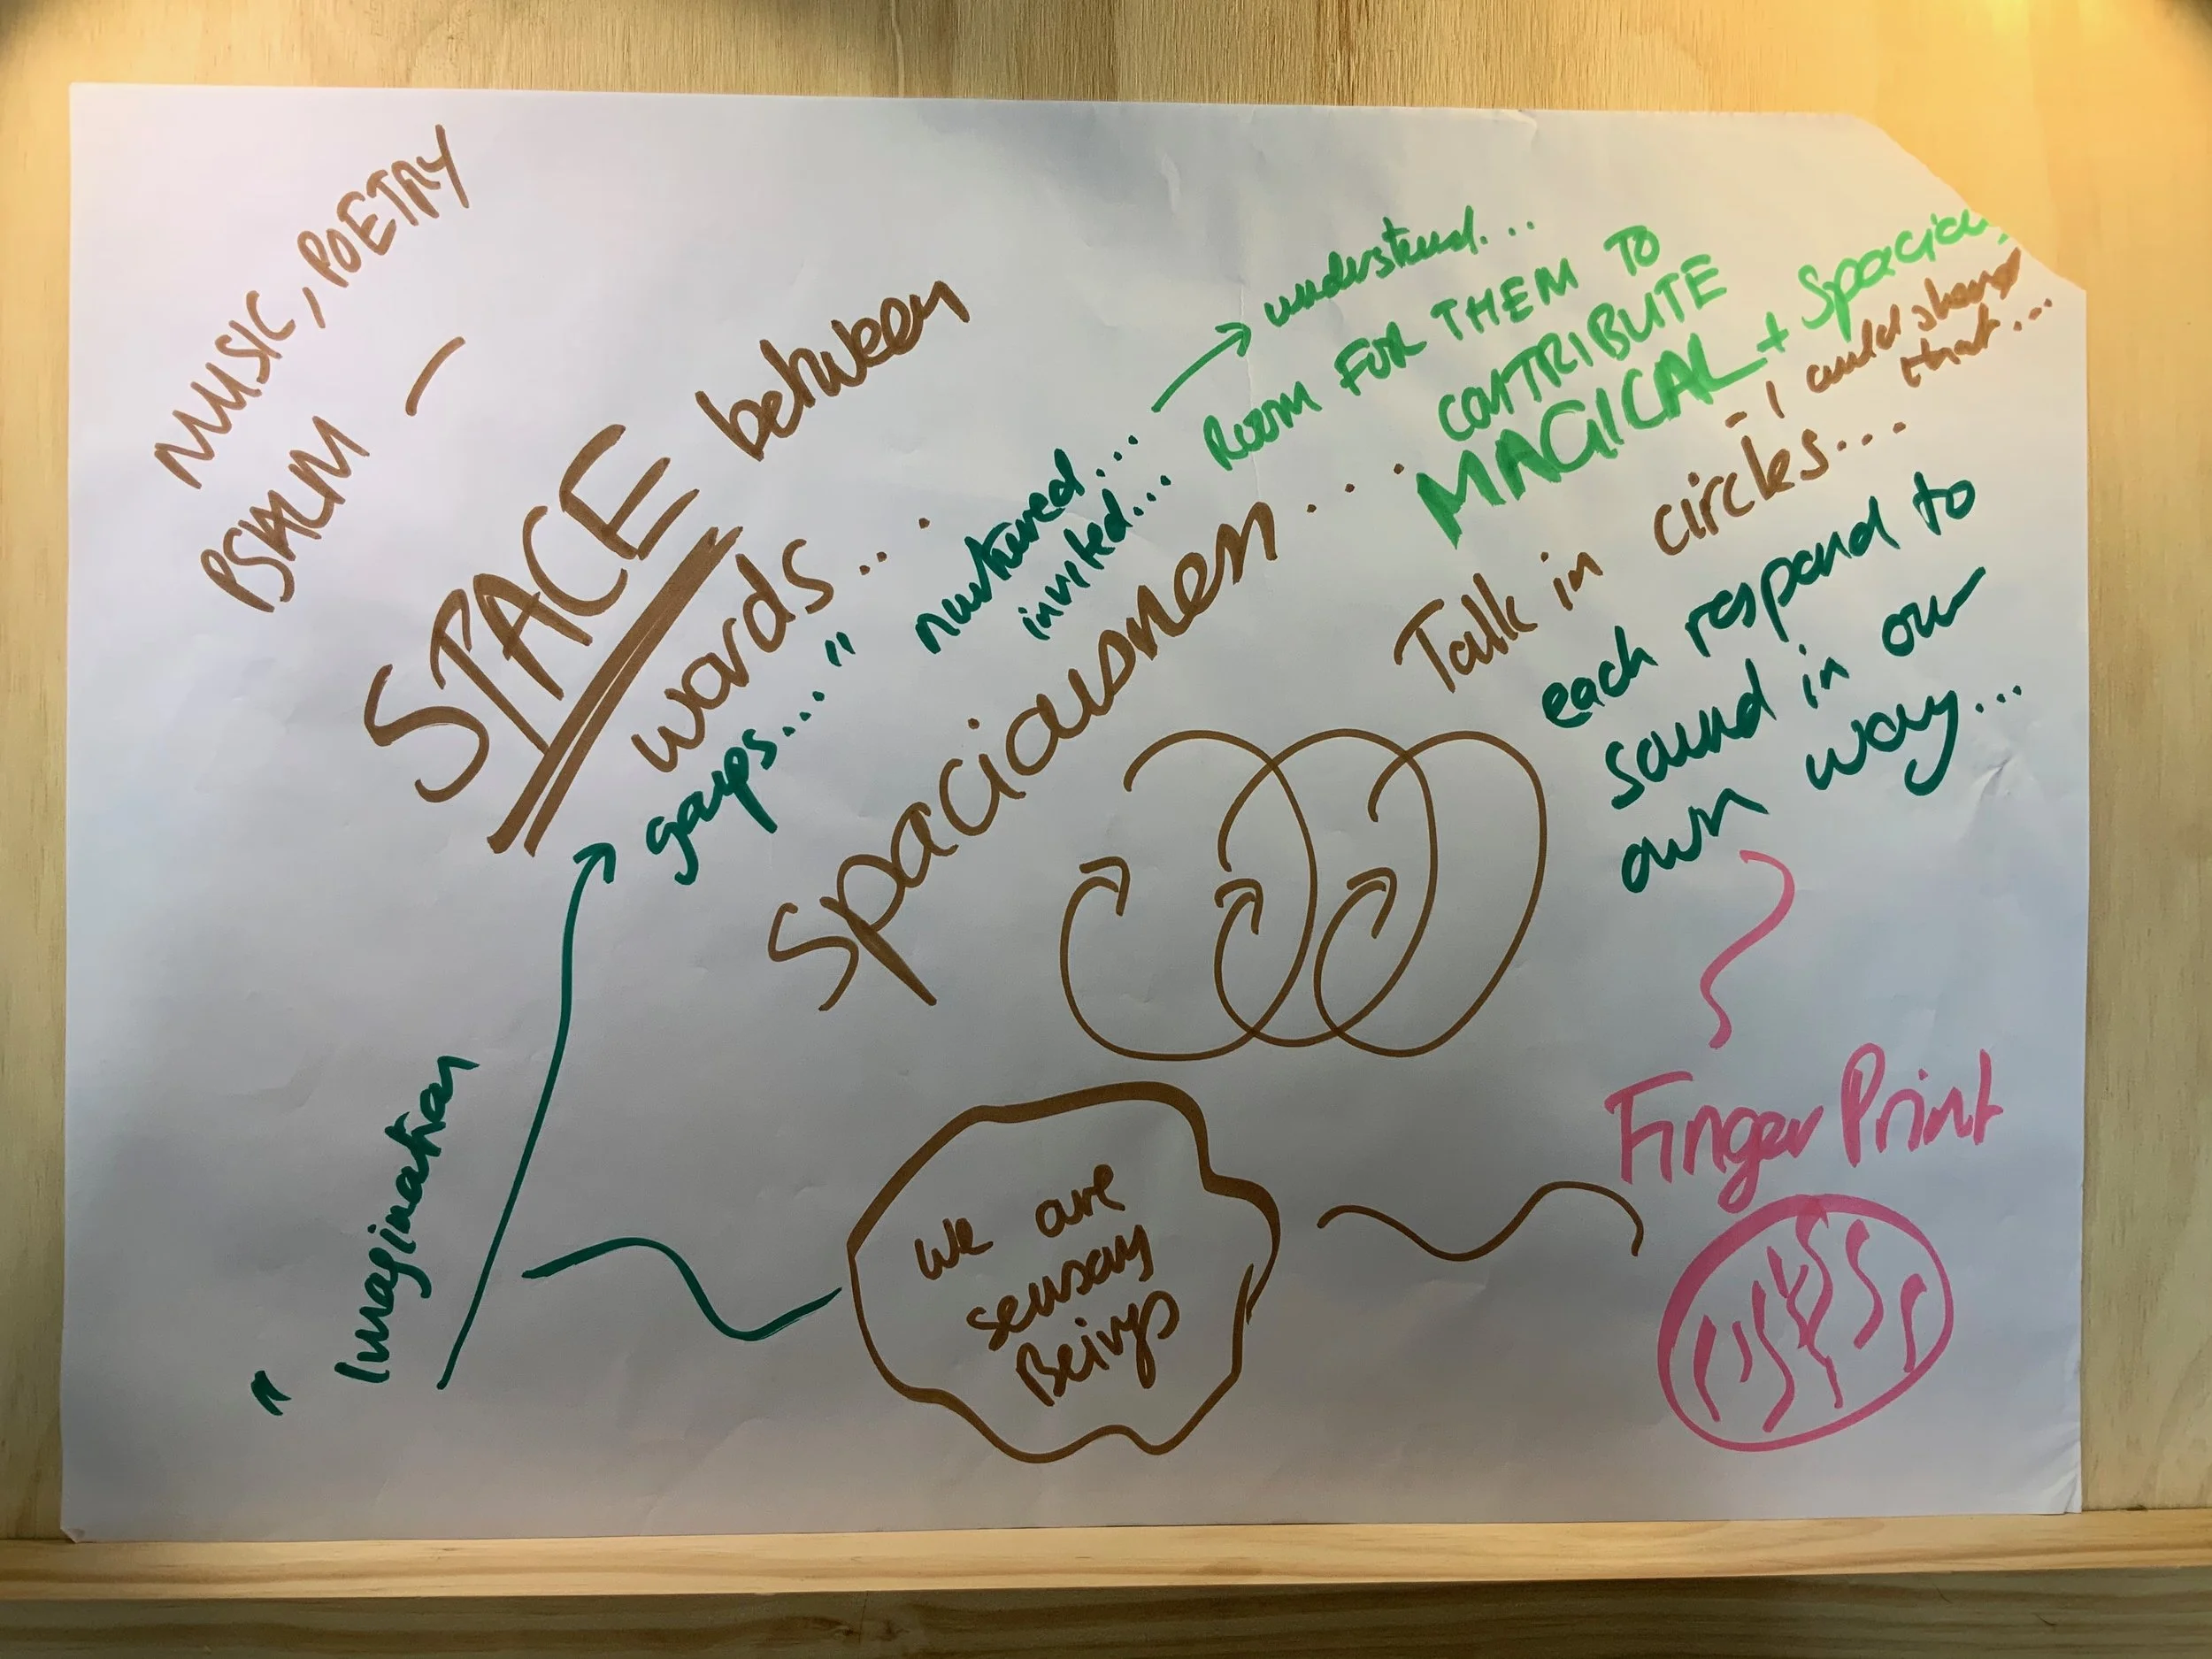 MUSIC, POETRY
PSALM —
SPACE between
words...
gaps...."
nurtured....
invited....
→ understand...
ROOM FOR THEM TO
CONTRIBUTE
MAGICAL +
spaciousness....
- I could share
that...
Talk in circles...
each respond to
sound in our
own way...
Finger Print
" Imagination
we are
sensory
Beings